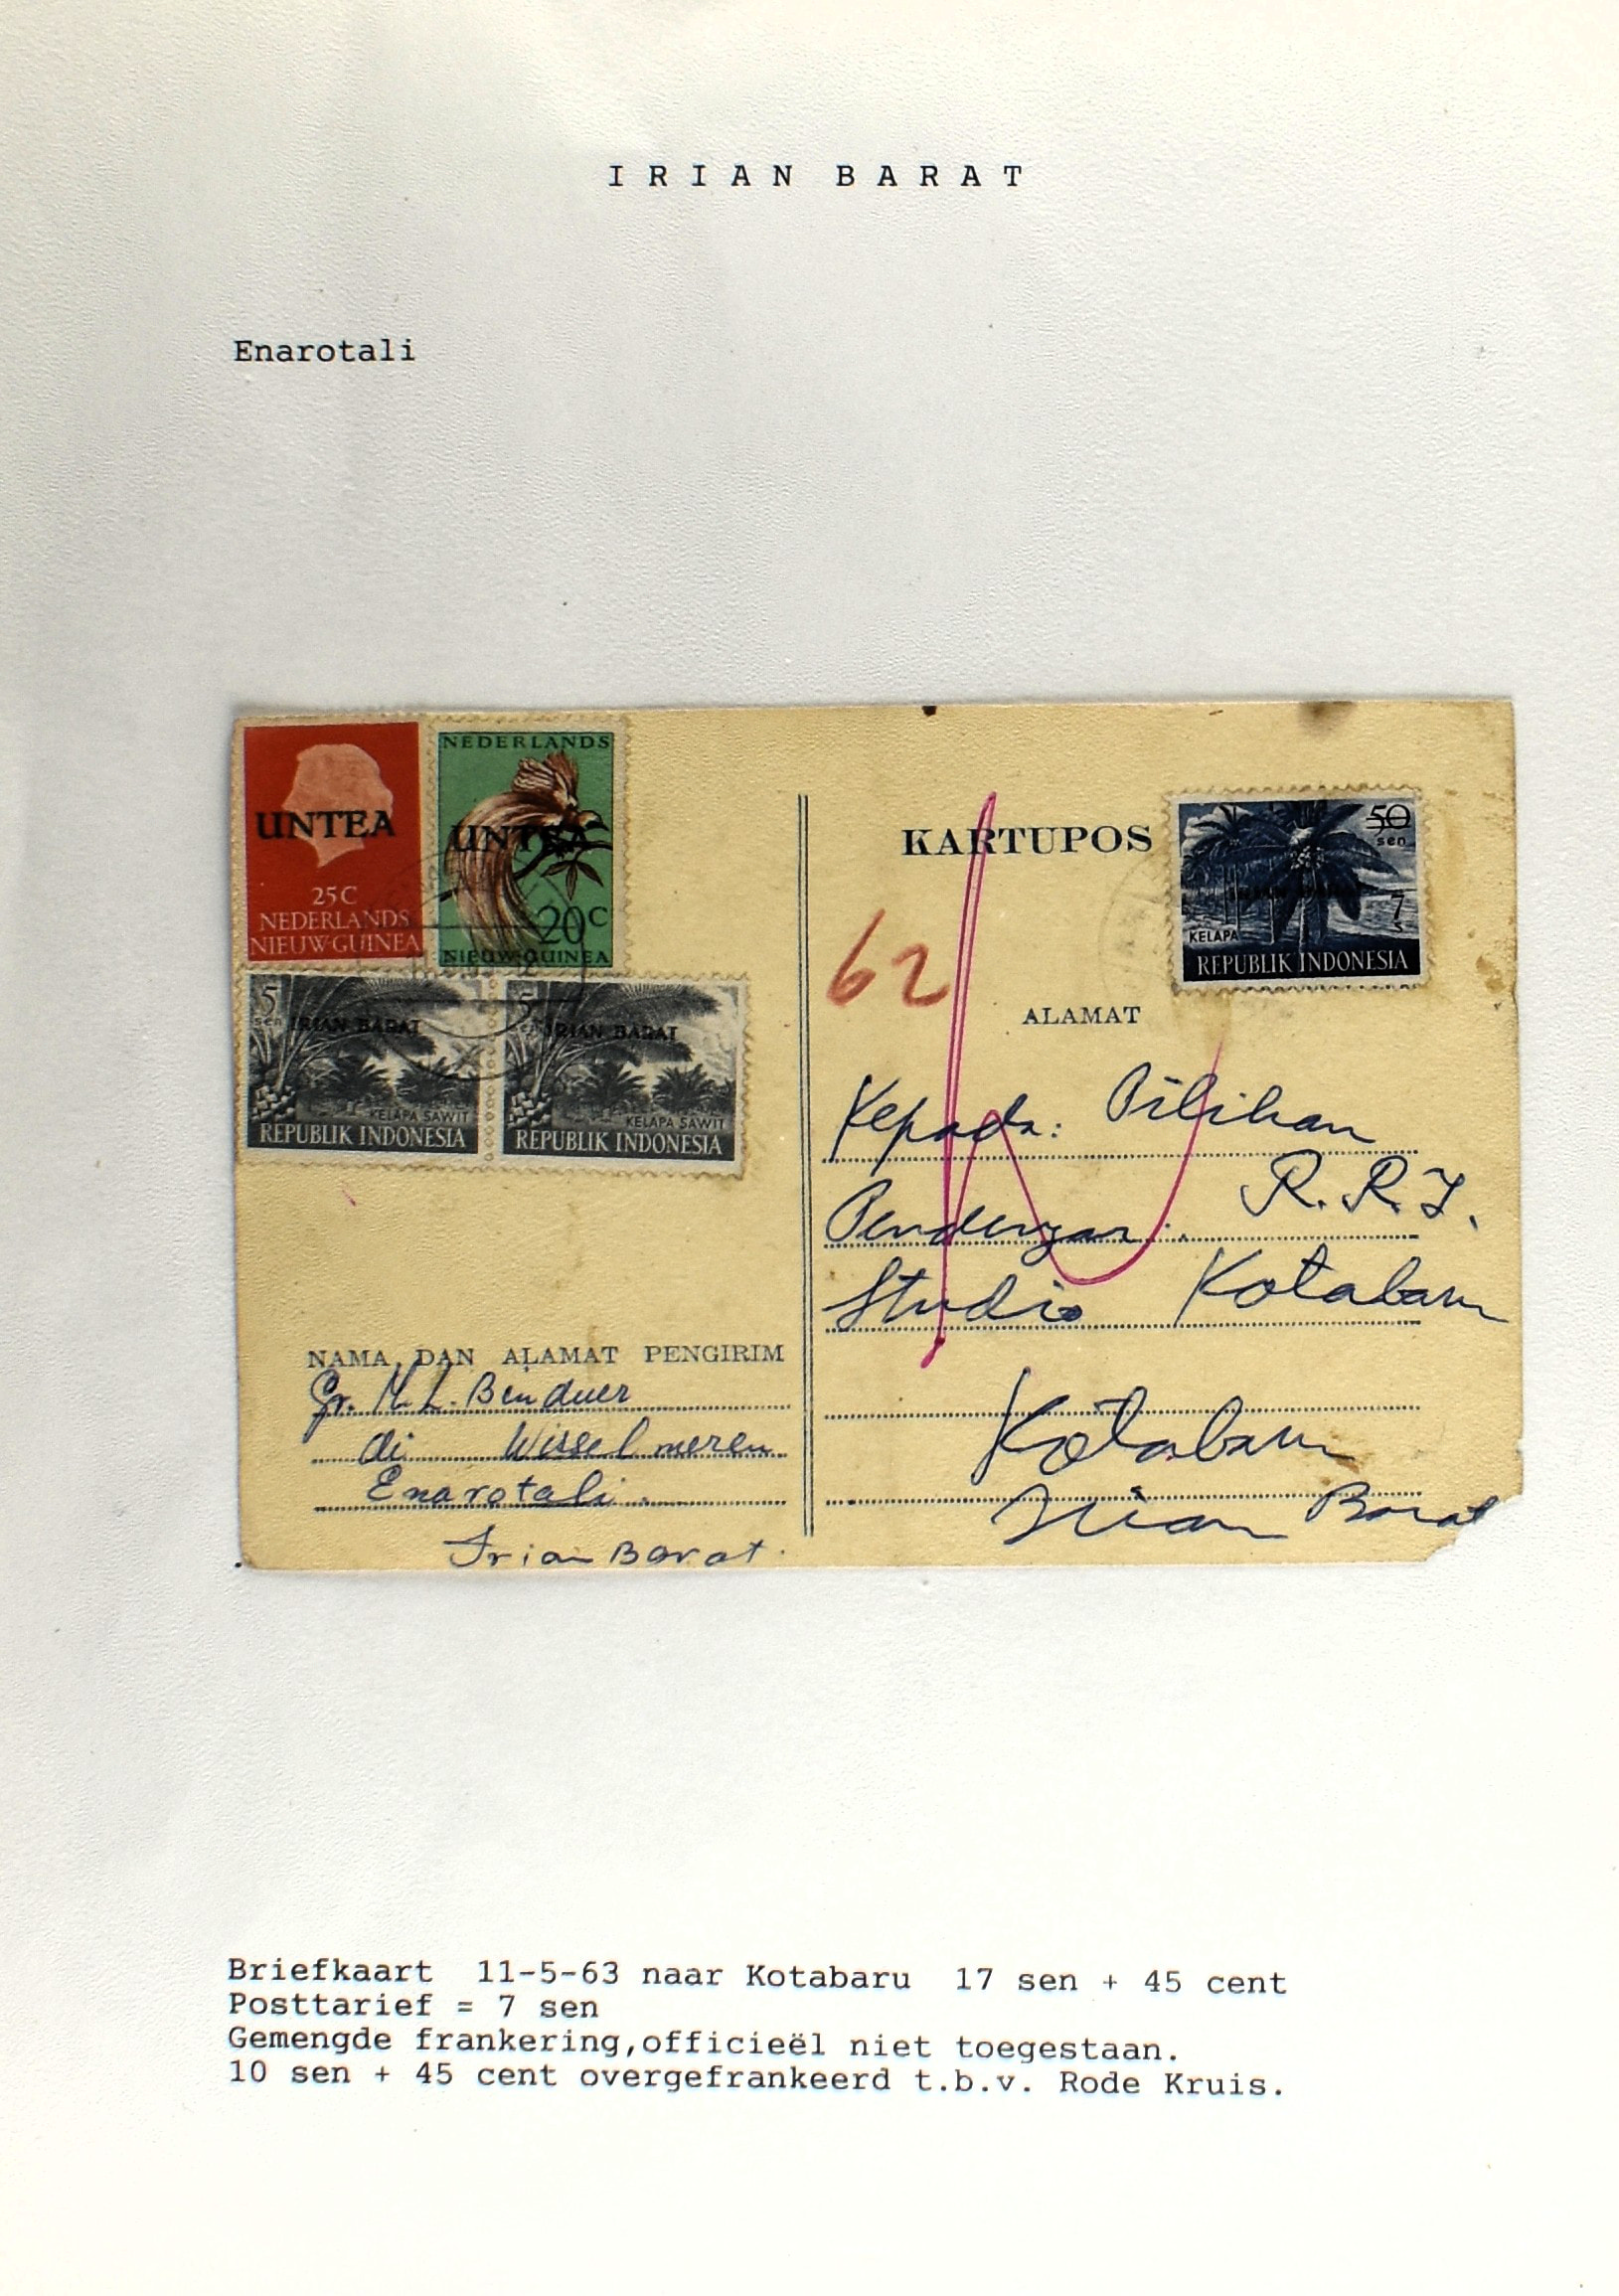 IRIAN BARAT
Enarotali
UNTEA
25C
NEDERLANDS
NIEUW-GUINEA
NEDERLANDS
UNTEA
20C
NIEUW-GUINEA
5
sen
IRIAN BARAT
KELAPA SAWIT
REPUBLIK INDONESIA
5
sen
IRIAN BARAT
KELAPA SAWIT
REPUBLIK INDONESIA
NAMA DAN ALAMAT PENGIRIM
Gr. M. L.
di Wisselmeren
Enarotali.
Irian Barat.
KARTUPOS
50
sen
IRIAN BARAT
7
s
KELAPA
REPUBLIK INDONESIA
62
ALAMAT
Kepada: Pilihan
Pendengar: R.R.I.
Studio Kotabaru
Kotabaru
Irian Barat
Briefkaart 11-5-63 naar Kotabaru 17 sen + 45 cent
Posttarief = 7 sen
Gemengde frankering,officieël niet toegestaan.
10 sen + 45 cent overgefrankeerd t.b.v. Rode Kruis.